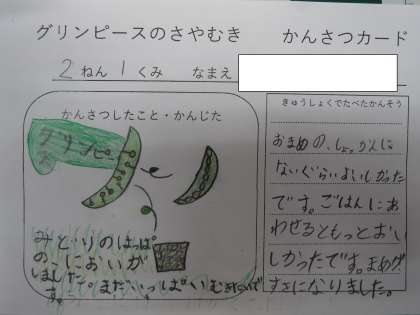 グリンピースのさやむき　かんさつカード
2ねん 1くみ　なまえ
かんさつしたこと・かんじた
グリンピー
ス
みどりのはっぱ
の、においが
しました。まだいっぱいむきたいで
す。
きゅうしょくでたべたかんそう
おまめの、
ないぐらいおいしかった
です。ごはんにあ
わせるともっとおい
しかったです。まめが
すきになりました。